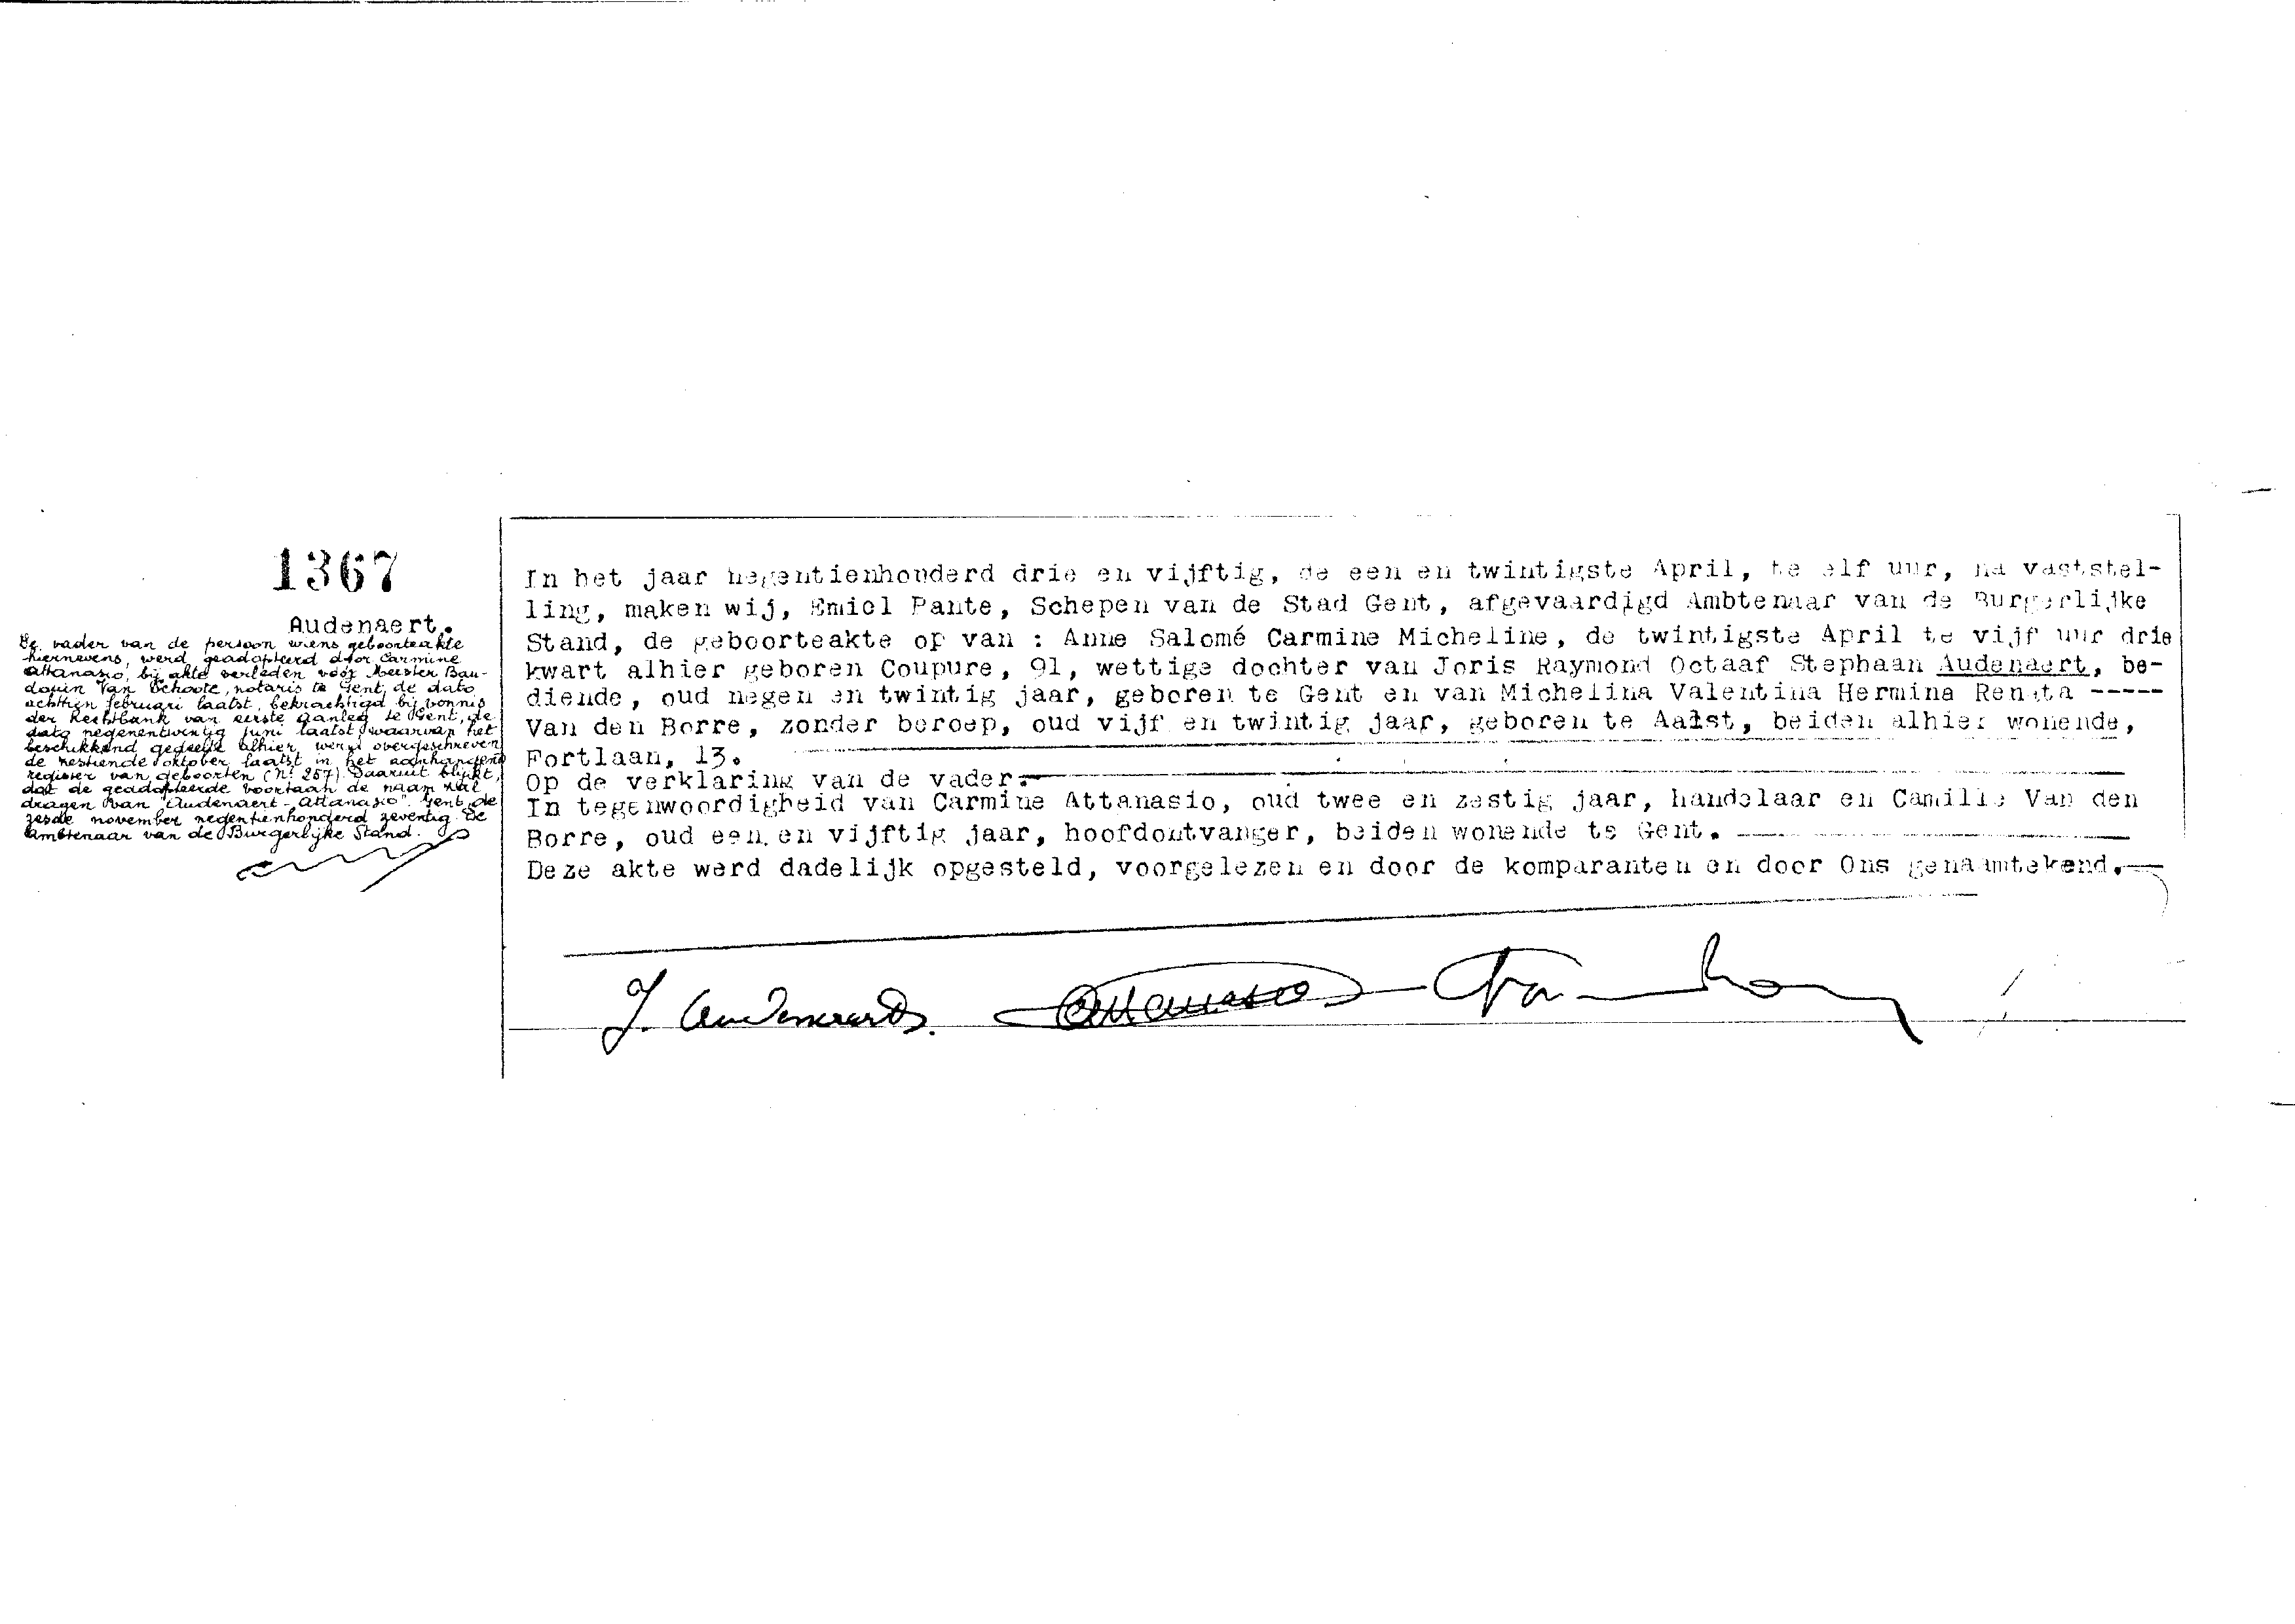 1367
Audenaert.
De vader van de persoon wiens geboorteakte
hiernevens, werd geadopteerd door Carmine
Attanasio, bij akte verleden voor Meester Bau-
douin Van Schoote, notaris te Gent, de dato
achttien februari laatst, bekrachtigd bij vonnis
der Rechtbank van eerste aanleg te Gent, de
dato negenentwintig juni laatst, waarvan het
beschikkend gedeelte alhier werd overgeschreven
de zestiende oktober laatst in het aanhangend
register van geboorten (N° 257). Daaruit blijkt,
dat de geadopteerde voortaan de naam zal
dragen van "Audenaert-Attanasio". Gent, de
zesde november negentienhonderd zeventig. De
Ambtenaar van de Burgerlijke Stand.
In het jaar negentienhonderd drie en vijftig, de een en twintigste April, te elf uur, na vaststel-
ling, maken wij, Emiel Pante, Schepen van de Stad Gent, afgevaardigd Ambtenaar van de Burgerlijke
Stand, de geboorteakte op van : Anne Salomé Carmine Micheline, de twintigste April te vijf uur drie
kwart alhier geboren Coupure, 91, wettige dochter van Joris Raymond Octaaf Stephaan Audenaert, be-
diende, oud negen en twintig jaar, geboren te Gent en van Michelina Valentina Hermina Renata -----
Van den Borre, zonder beroep, oud vijf en twintig jaar, geboren te Aalst, beiden alhier wonende,
Fortlaan, 13.
Op de verklaring van de vader.
In tegenwoordigheid van Carmine Attanasio, oud twee en zestig jaar, handelaar en Camille Van den
Borre, oud een en vijftig jaar, hoofdontvanger, beiden wonende te Gent.
Deze akte werd dadelijk opgesteld, voorgelezen en door de komparanten en door Ons genaamtekend.
J. Audenaert. Attanasio